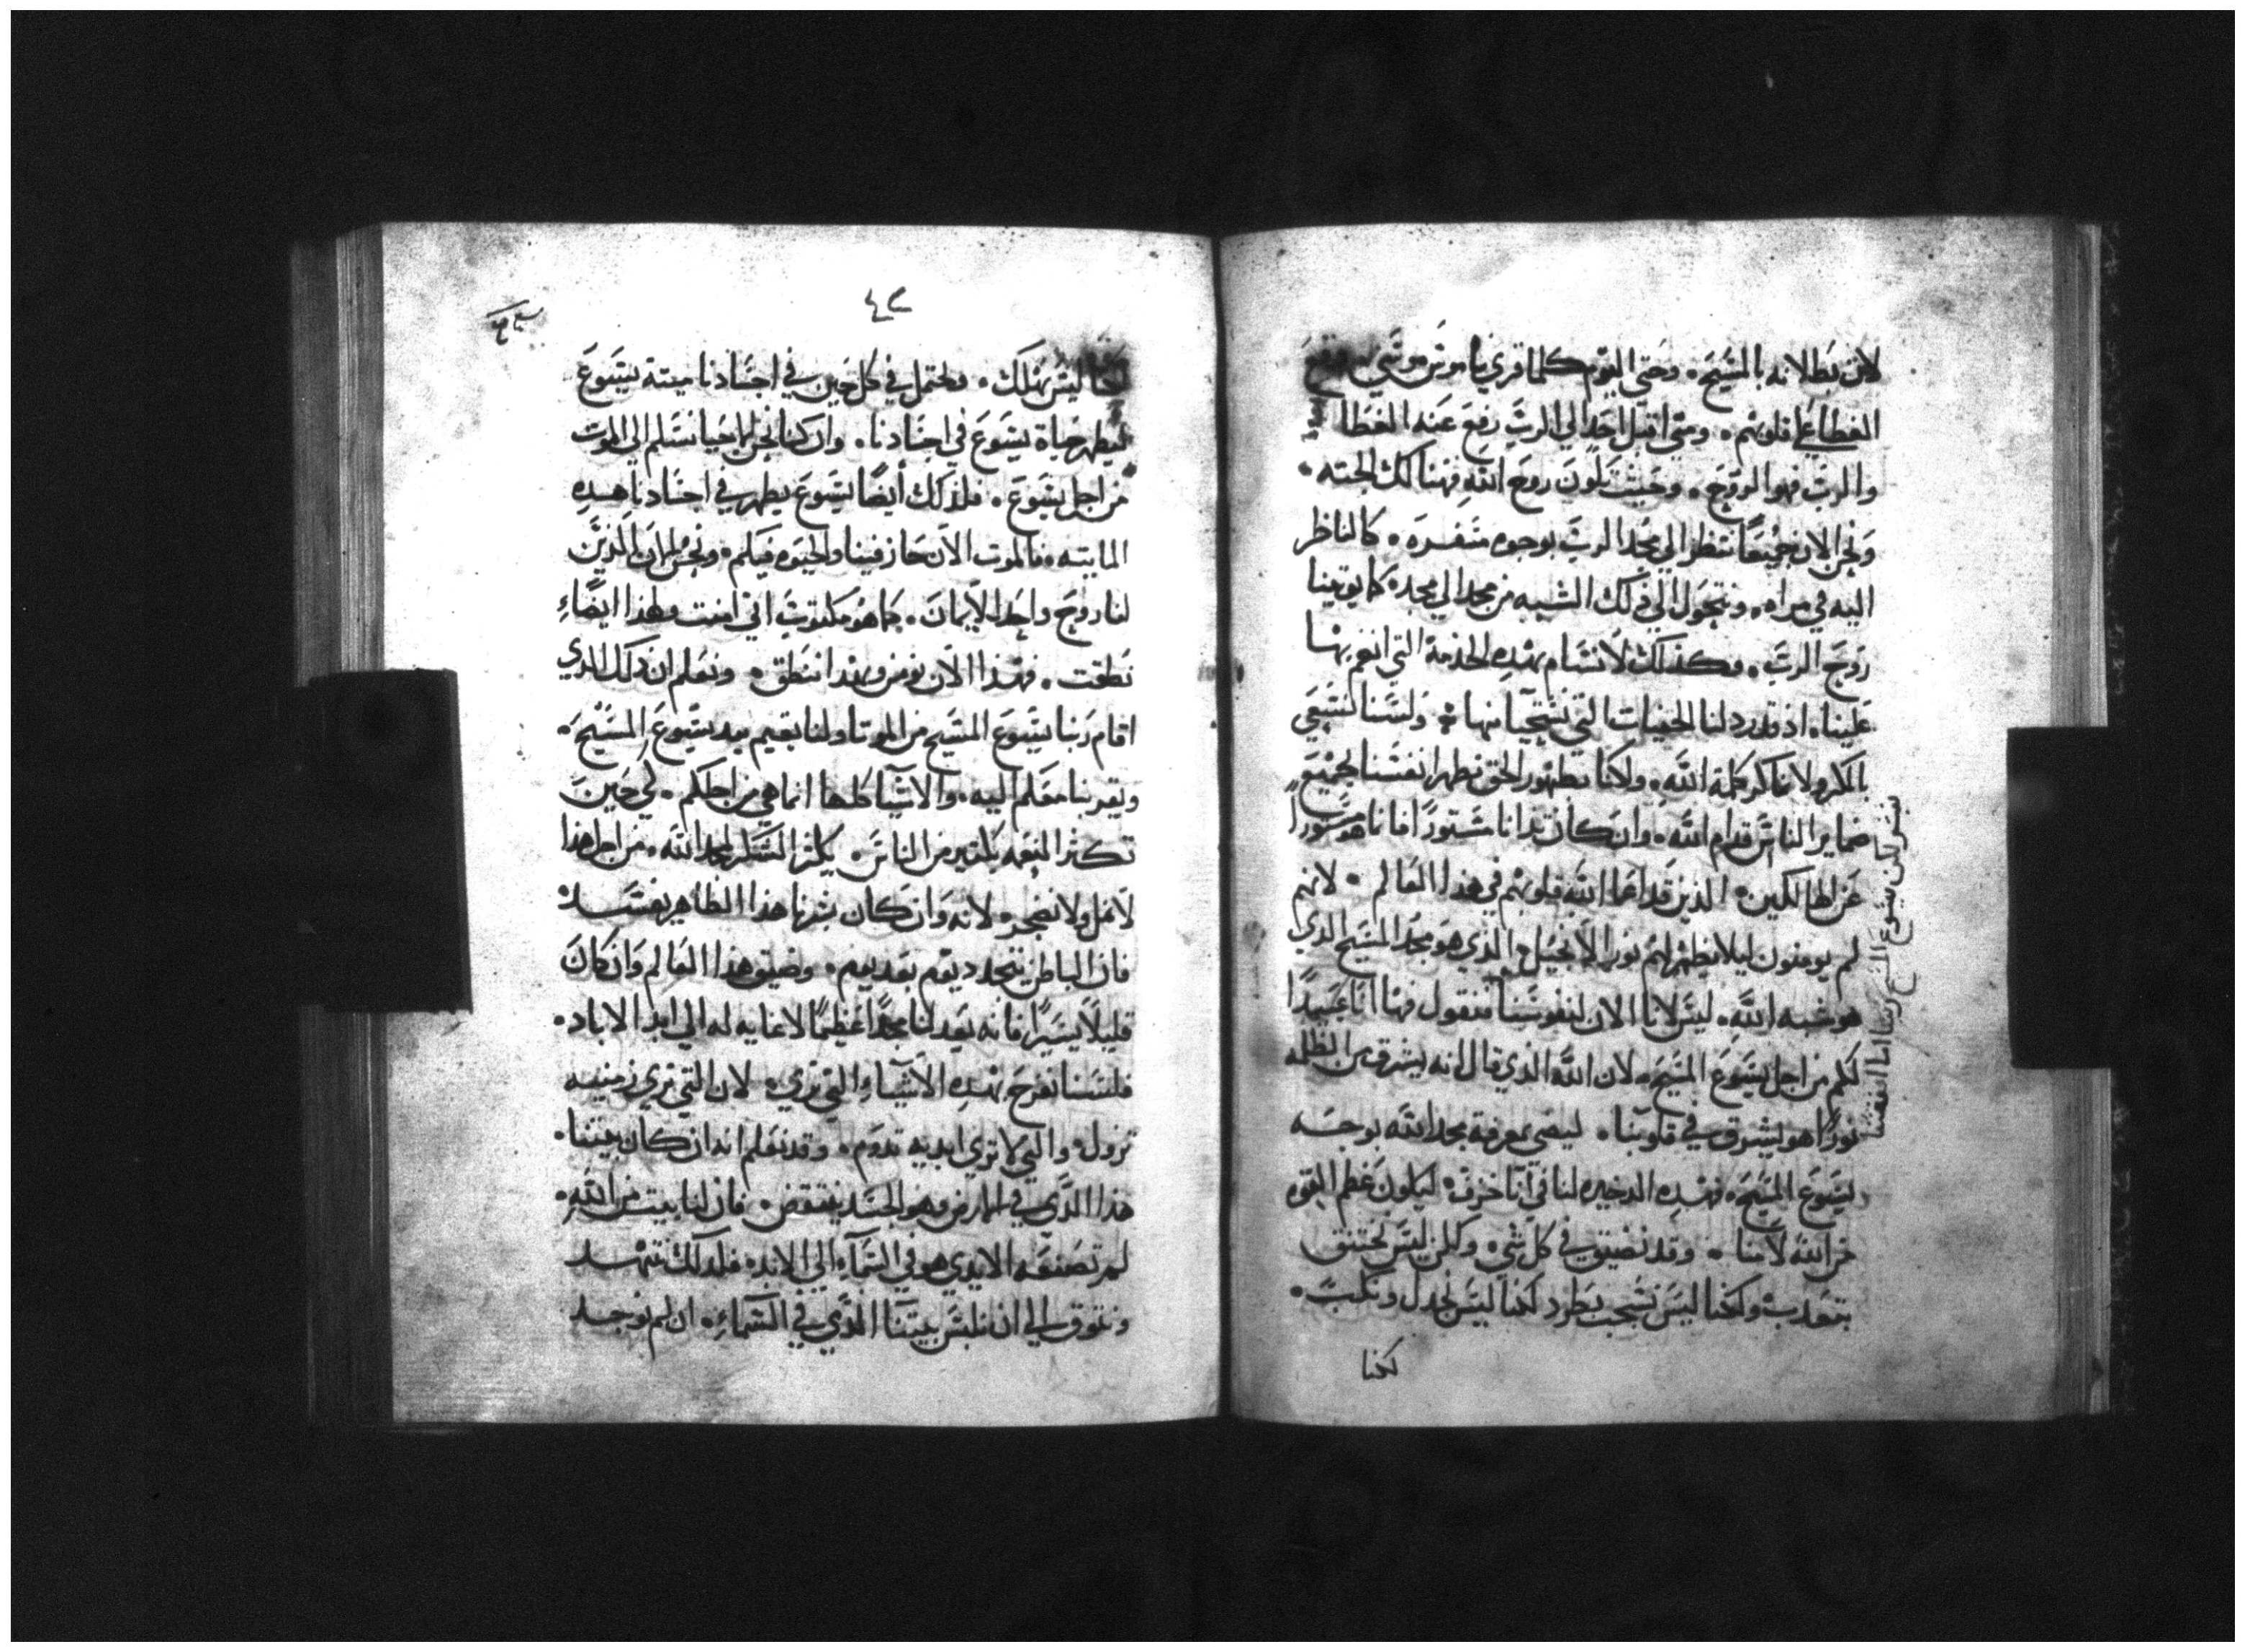 لان بطلانه بالمسيح. وحتى اليوم كلما قري ناموس موسي. وقع
الغطا علي قلوبهم. ومتي اقبل احد الي الرب رفع عنه الغطا
والرب فهو الروح. وحيث تكون روح الله فهناك الحته.
ونحن الان جميعًا ننظر الي مجد الرب بوجوه منفسره. كالناظر
اليه في مراه. ونتحول الي ذلك الشبه من مجد الي مجد. كما يوتينا
روح الرب. وكذلك لا نسام بهذه الخدمة التي انعم بها
علينا. اذ قد رد لنا الخفيات التي نستحيا منها. ولسنا نسعي
بالمكر ولا نماكر كلمة الله. ولاكنا بظهور الحق نظهر انفسنا لجميع
ضماير الناس قدام الله. وان كان بدانا مستورًا فانما هو مستورًا
عن الهالكين. الذين قد اعما الله قلوبهم في هذا العالم. لانهم
لم يومنون ليلا يظهر لهم نور الانجيل الذي هو مجد المسيح الذي
هو شبه الله. ليس لانا الان لنفوسنا فنقول فها انا عبيدًا
لكم من اجل يسوع المسيح. لان الله الذي قال انه يشرق من الظلمه
نورًا هو يشرق في قلوبنا. ليضي بمعرفة مجد الله بوجه
يسوع المسيح. فهذه الدخيره لنا في آنا خزف. ليكون عظم القوه
من الله لا منا. وقد نضيق في كل شي. ولكن ليس نختنق
نتعدب ولكنا ليس نشجب نطرد لكنا ليس نخدل ونكب.
لكنا
نبشر لكن يسوع المسيح ربنا اما انفسنا
٤٢
لكنا ليس نهلك. ونحتمل في كل حين في اجسادنا ميتة يسوع
ليظهر حياة يسوع في اجسادنا. وان كنا نحن الاحيا نسلم الي الموت
من اجل يسوع. فلذلك أيضًا يسوع يظهر في اجسادنا هذه
المايته. فالموت الان حاز فينا والحيوه فيكم. ونحن الان الذين
لنا روح واحد الايمان. كما هو مكتوب اني امنت ولهذا ايضاء
نطقت. فهذا الان نومن وبهذا ننطق. ونعلم ان ذلك الذي
اقام ربنا يسوع المسيح من الموتا ولنا يقيم بيد يسوع المسيح.
ويقربنا معكم اليه. والاشيا كلها انما هي من اجلكم. لي حين
تكثر النعمه بكثير من الناس. يكثر الشكر لمجد الله. من اجل هذا
لا نمل ولا نضجر. لانه وان كان بشرنا هذا الظاهر يفسد
فان الباطن يتجدد يوم بعد يوم. وضيق هذا العالم وان كان
قليلًا يسيرًا فانه يعد لنا مجدًا عظيمًا لا غايه له الي ابد الاباد.
فلسنا نفرح بهذه الاشياء التي تري. لان التي تري زمنيه
تزول. والتي لا تري ابديه تدوم. وقد نعلم انه ان كان بيتنا
هذا الذي في الارض وهو الجسد ينتقض. فان لنا بيت من الله.
لم تصنعه الايدي هو في السماء الي الابد. فلدلك نتنهد
ونتوق الي ان نلبس بيتنا الذي في السماء. ان لم نوجد